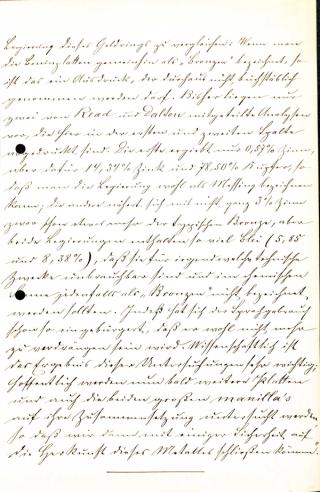 Legierung dieses Geldrings zu vergleichen: Wenn man
die Beninplatten gemeinhin als "Bronzen" bezeichnet, so
ist das ein Ausdruck, der durchaus nicht buchstäblich
genommen werden darf. Bisher liegen nur
zwei von Read und Dalton mitgeteilte Analysen
vor, die hier in der ersten und zweiten Spalte
abgedruckt sind. Die erste ergiebt nur 0,57% Zinn,
aber dafür 14,34% Zink und 78,50% Kupfer, so
daß man die Legierung wohl als Messing bezeichnen
kann, die andere nähert sich mit nicht ganz 3% Zinn
zwar schon etwas mehr der typischen Bronze, aber
beide Legierungen enthalten so viel Blei (5,85
und 8,38%), daß sie für irgendwelche technische
Zwecke unbrauchbar sind und im chemischen
Sinne jedenfalls als "Bronzen" nicht bezeichnet
werden sollten. Indeß hat sich der Sprachgebrauch
schon so eingebürgert, daß er wohl nicht mehr
zu verdrängen sein wird. Wissenschaftlich ist
das Ergebnis dieser Untersuchungen sehr wichtig;
hoffentlich werden nun bald weitere Platten
und auch die beiden großen manilla's
auf ihre Zusammensetzung untersucht werden
so daß wir dann mit einiger Sicherheit auf
die Herkunft dieses Metalles schließen können".